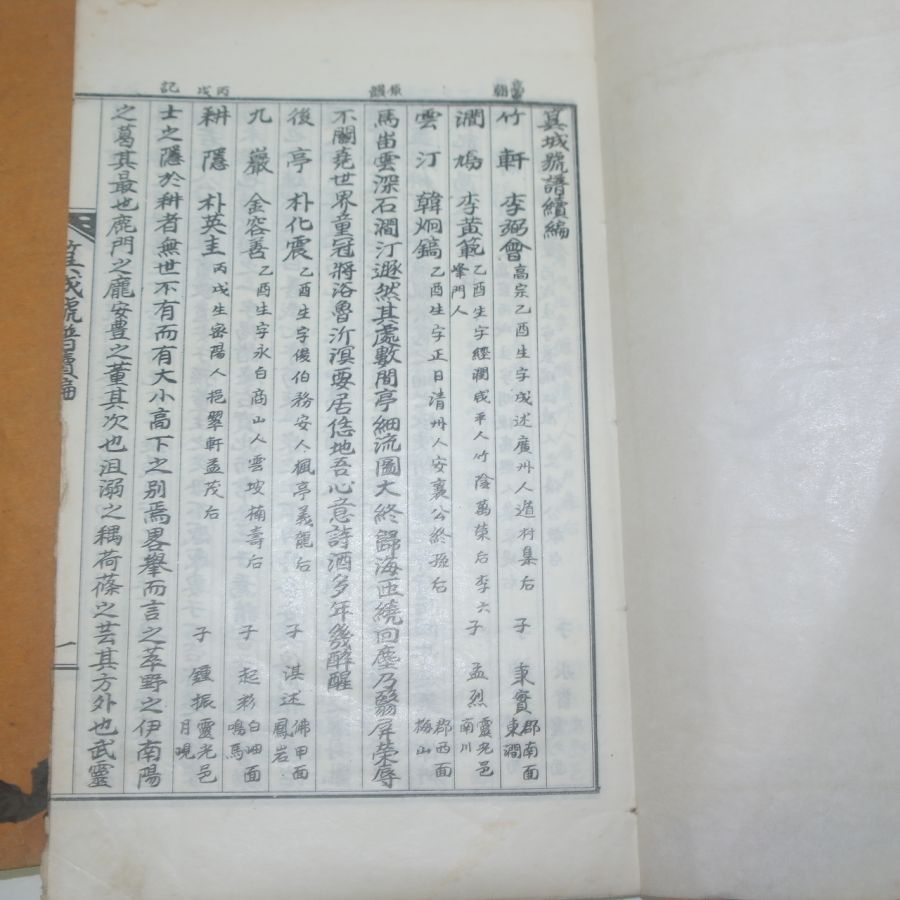 高宗朝
原韻
丙戌
記
箕城號譜續編
竹軒 李弼會 高宗乙酉生字成述廣州人遁村集后 子 秉實 郡南面東澗
澗塢 李黃範 乙酉生字經澗咸平人竹陰萬榮后李六峰門人 子 孟烈 靈光邑南川
雲汀 韓炯鎬 乙酉生字正日淸州人安襄公終孫后 郡西面梅山
馬峀雲深石澗汀遯然其處數間亭細流圖大終歸海匝繞回塵乃翳屛榮辱
不關堯世界童冠將浴魯沂溟要居恁地吾心意詩酒多年幾醉醒
後亭 朴化震 乙酉生字俊伯務安人楓亭義龍后 子 淇述 佛甲面鳳岩
九巖 金容善 乙酉生字永白商山人雲坡楠壽后 子 起彩 白岫面鳴馬
耕隱 朴英圭 丙戌生密陽人挹翠軒孟茂后 子 鍾振 靈光邑月現
士之隱於耕者無世不有而有大小高下之別焉畧擧而言之莘野之伊南陽
之葛其最也鹿門之龐安豊之董其次也沮溺之耦荷蓧之芸其方外也武靈
箕城號譜續編
一